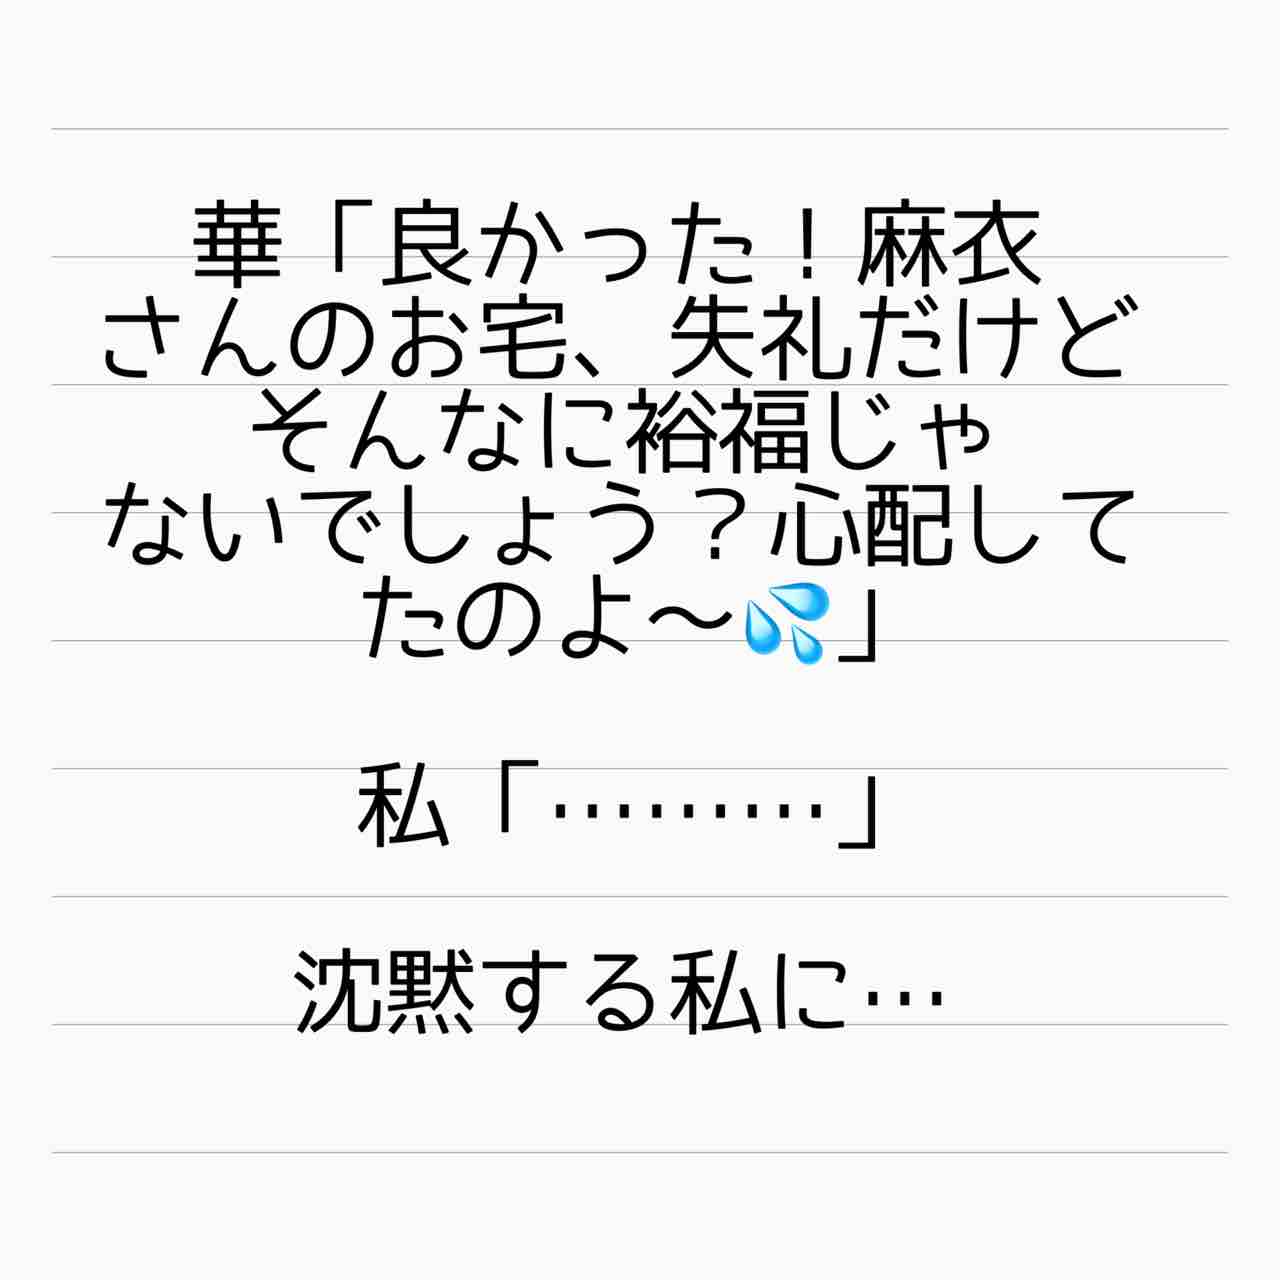 華「良かった！麻衣
さんのお宅、失礼だけど
そんなに裕福じゃ
ないでしょう？心配して
たのよ〜💦」
私「………」
沈黙する私に…